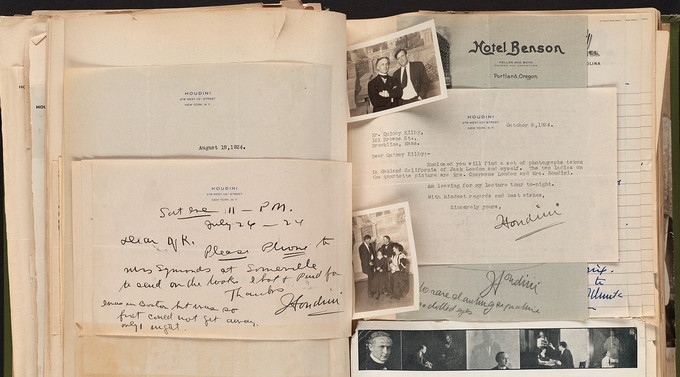 HOUDINI
278 WEST 113TH STREET
NEW YORK, N.Y.
August 18, 1924.
HOUDINI
278 WEST 113TH STREET
NEW YORK, N.Y.
Sat eve 11 - P.M.
July 26 - 24
Dear QK.
Please Phone to
Mrs Symonds at Somerville
to send on the books I bot & Paid for
Thanks
Houdini
was in Boston but was so
could not get away.
only 1 night.
Hotel Benson
KELLER AND BOYD
Portland, Oregon
HOUDINI
278 WEST 113TH STREET
NEW YORK, N.Y.
October 8, 1924.
Mr. Quincy Kilby,
Brookline, Mass.
Dear Quincy Kilby:-
Enclosed you will find a set of photographs taken
in Oakland California of Jack London and myself. The two ladies on
the quartette picture are Mrs. Charmian London and Mrs. Houdini.
Am leaving for my lecture tour to-night.
With kindest regards and best wishes,
Sincerely yours,
Houdini
Houdini
rare slanting signature
dotted eyes